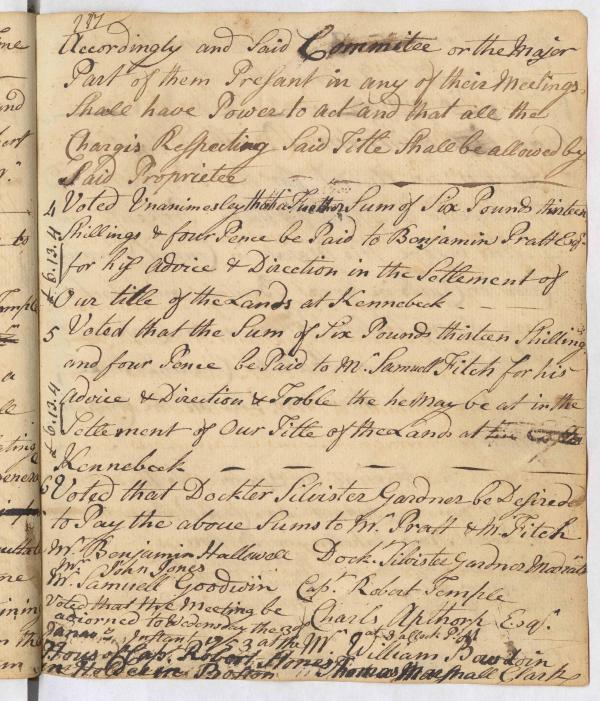 217
Accordingly and Said Commitee or the Major
Part of them Presant in any of their Meetings
Shall have Power to act and that all the
Chargis Respecting Said Title Shall be allowed by
Said Proprietee
4 Voted Unanimesley that a Further Sum of Six Pounds thirteen
Shillings & four Pence be Paid to Benjamin Pratt Esqr.
£6.13.4
for his Advice & Direction in the Settlement of
Our title of the Lands at Kennebeck
5 Voted that the Sum of Six Pounds thirteen Shilling
and four Pence be Paid to Mr. Samuell Fitch for his
£6.13.4
Advice & Direction & Troble the he May be at in the
Settlement of Our Title of the Lands at
Kennebeck
6 Voted that Dockter Silvister Gardner be Desired
to Pay the above Sums to Mr. Pratt & Mr. Fitch
Mr. Benjamin Hallowell Dockr. Silvister Gardner Modrat
Mr. John Jones
Mr. Samuell Goodwin Capt. Robert Temple
Voted that the Meeting be Charls Apthorp Esqr.
ajorned to Wedensday the 3 at 3 a Clock P M
Instant at the Mr. William Bowdoin
Hous of Capt. Robert Stones Thomas Marshall Clark
in Boston